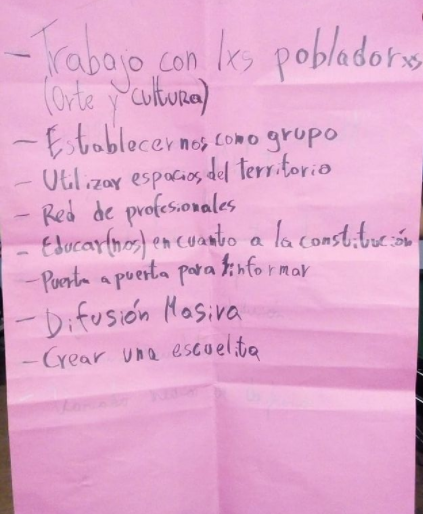 - Trabajo con lxs pobladorxs
(Arte y cultura)
- Establecernos como grupo
- Utilizar espacios del territorio
- Red de profesionales
- Educar(nos) en cuanto a la constitución
- Puerta a puerta para informar
- Difusión Masiva
- Crear una escuelita